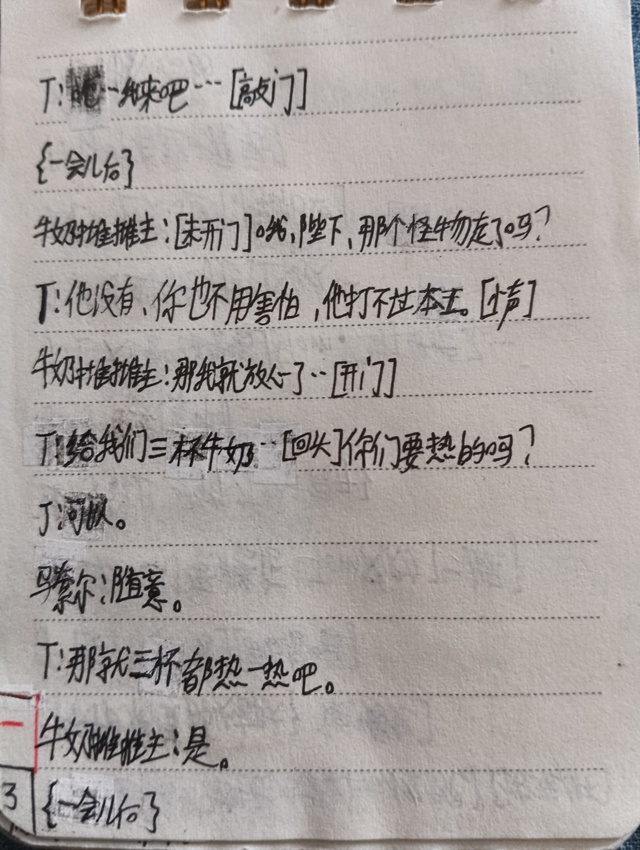 T:一起来吧…[敲门]
{一会儿后}
牛奶摊摊主:[未开门]哦,陛下,那个怪物走了吗?
T:他没有、你也不用害怕,他打不过本王。[小声]
牛奶摊摊主:那我就放心了…[开门]
T:给我们三杯牛奶…[回头]你们要热的吗?
J:可以。
马蒙尔:随意。
T:那就三杯都热一热吧。
牛奶摊摊主:是。
3
{一会儿后}